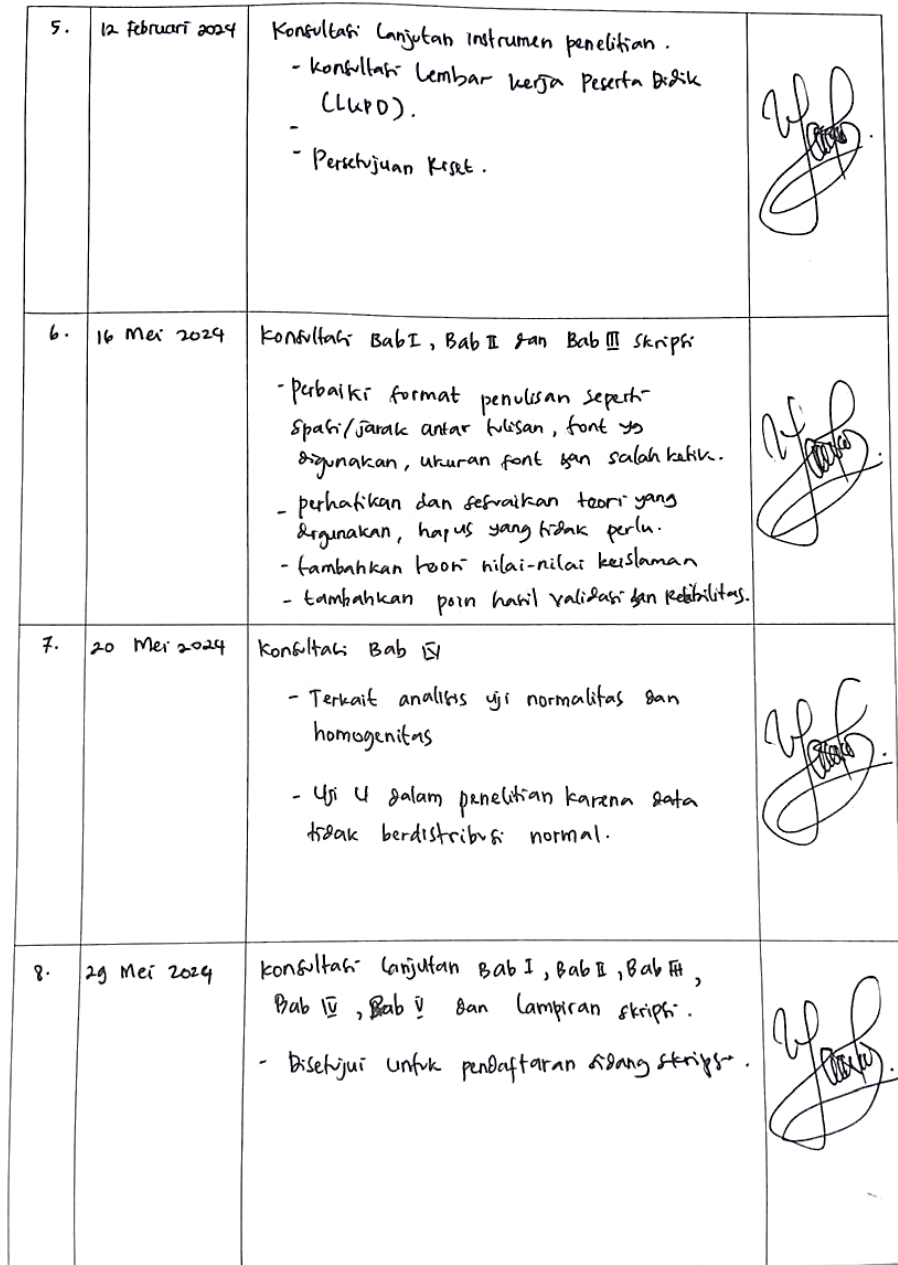 5. 12 Februari 2024 Konsultasi Lanjutan instrumen penelitian.
- Konsultasi Lembar Kerja Peserta Didik
(LKPD).
-
- Persetujuan Riset.
6. 16 Mei 2024 Konsultasi Bab I, Bab II dan Bab III Skripsi
- Perbaiki format penulisan seperti
spasi/jarak antar tulisan, font yg
digunakan, ukuran font dan salah ketik.
- perhatikan dan sesuaikan teori yang
digunakan, hapus yang tidak perlu.
- tambahkan teori nilai-nilai keislaman
- tambahkan poin hasil validasi dan Reliabilitas.
7. 20 Mei 2024 Konsultasi Bab IV
- Terkait analisis uji normalitas dan
homogenitas
- Uji U dalam penelitian karena data
tidak berdistribusi normal.
8. 29 Mei 2024 Konsultasi Lanjutan Bab I, Bab II, Bab III,
Bab IV, Bab V dan Lampiran skripsi.
- Disetujui untuk pendaftaran sidang skripsi.